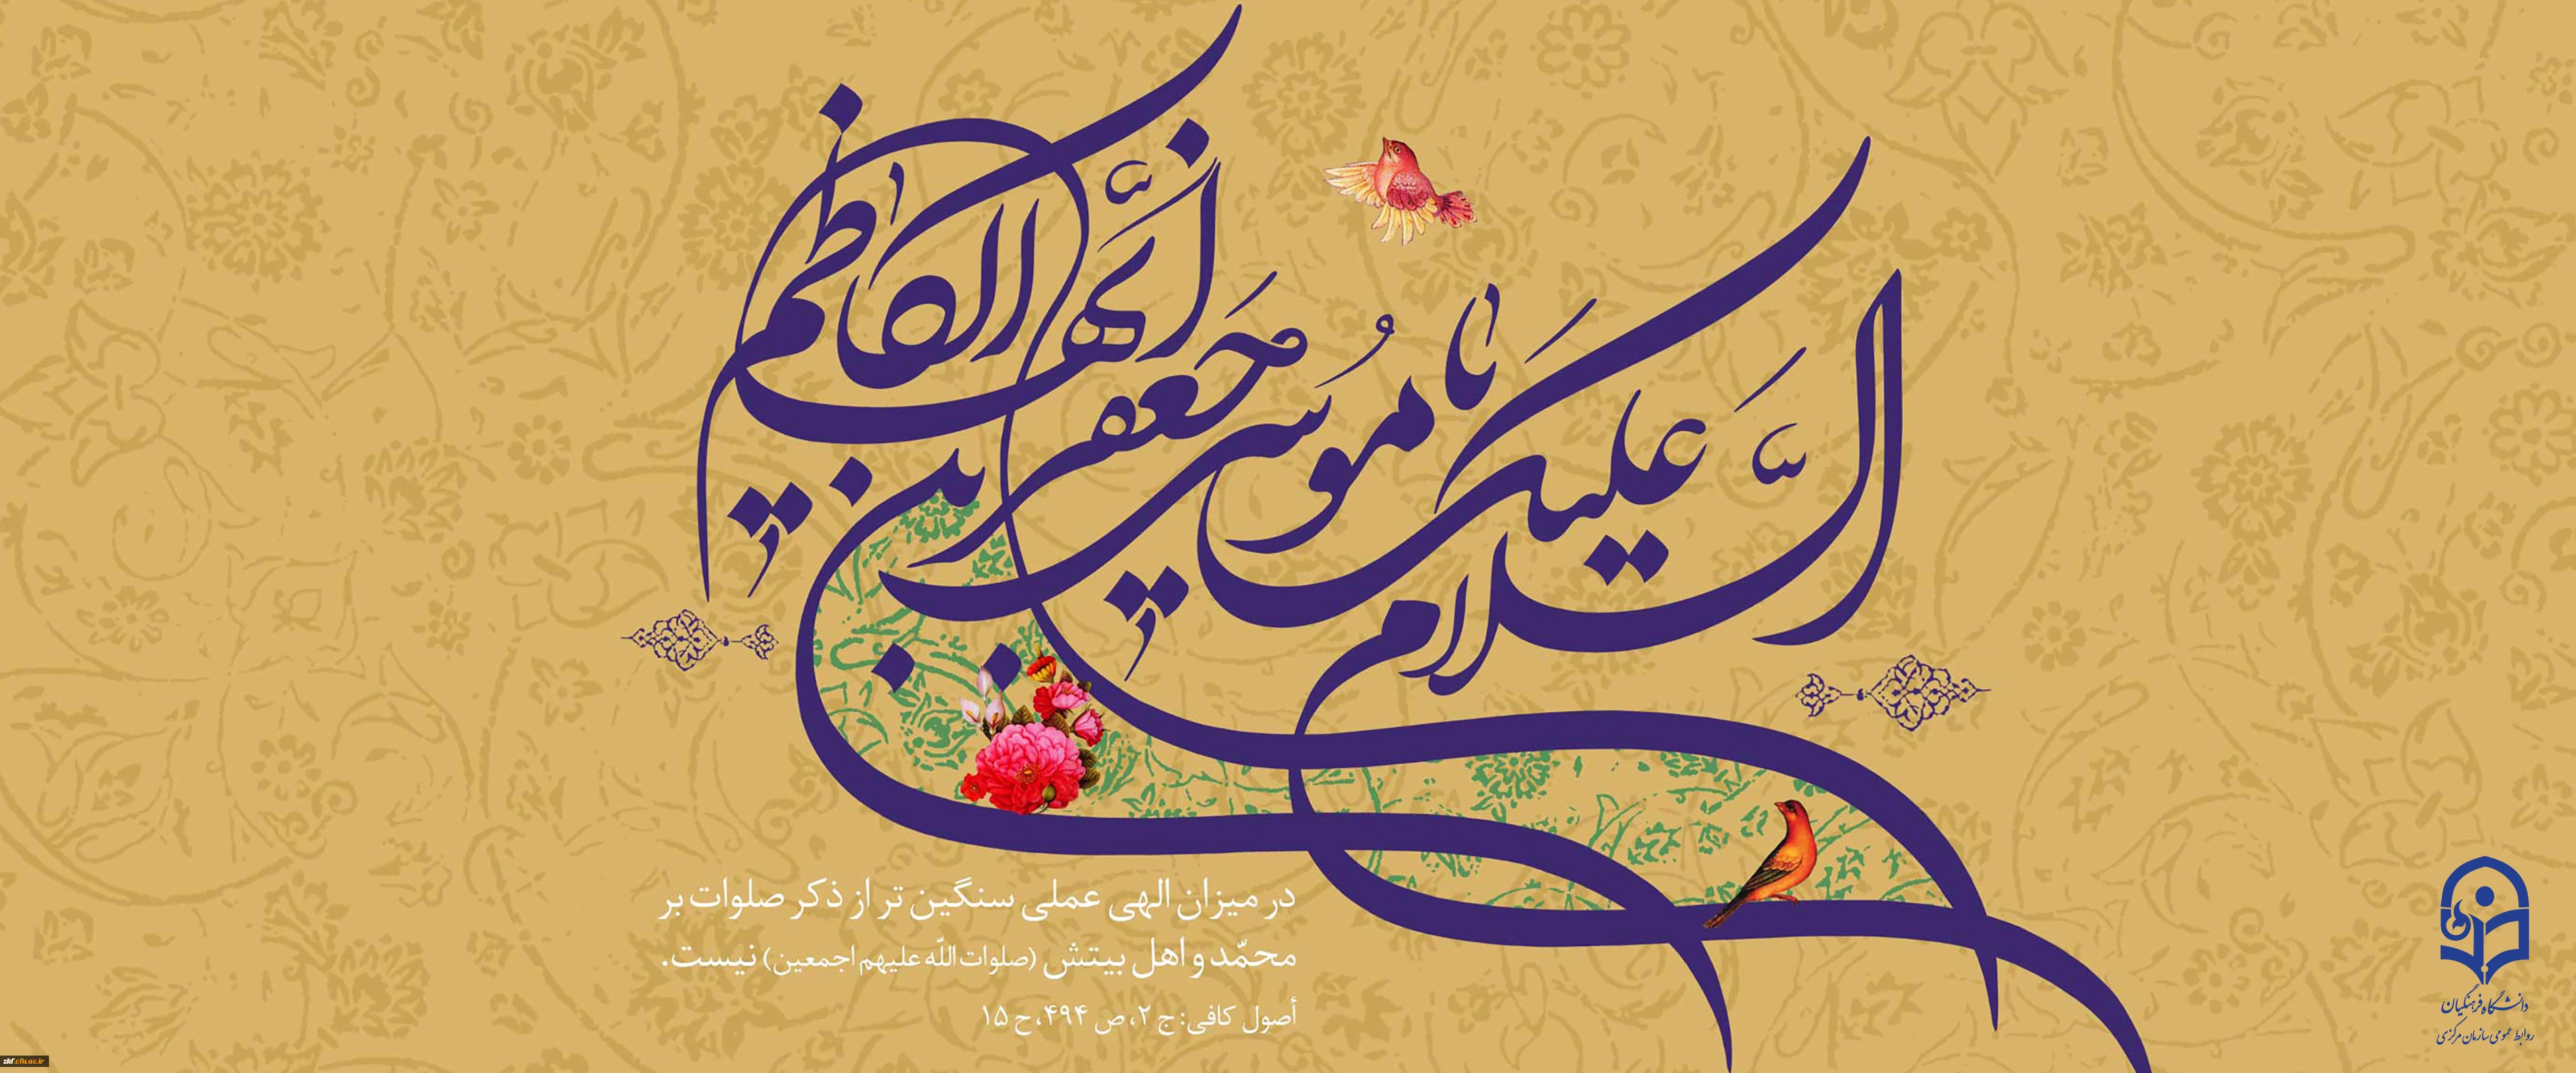 السلام علیک یا موسی بن جعفر ایها الکاظم
در میزان الهی عملی سنگین تر از ذکر صلوات بر
محمّد و اهل بیتش (صلوات اللّه علیهم اجمعین) نیست.
أصول کافی: ج ۲، ص ۴۹۴، ح ۱۵
دانشگاه فرهنگیان
روابط عمومی سازمان مرکزی
zkf.cfu.ac.ir